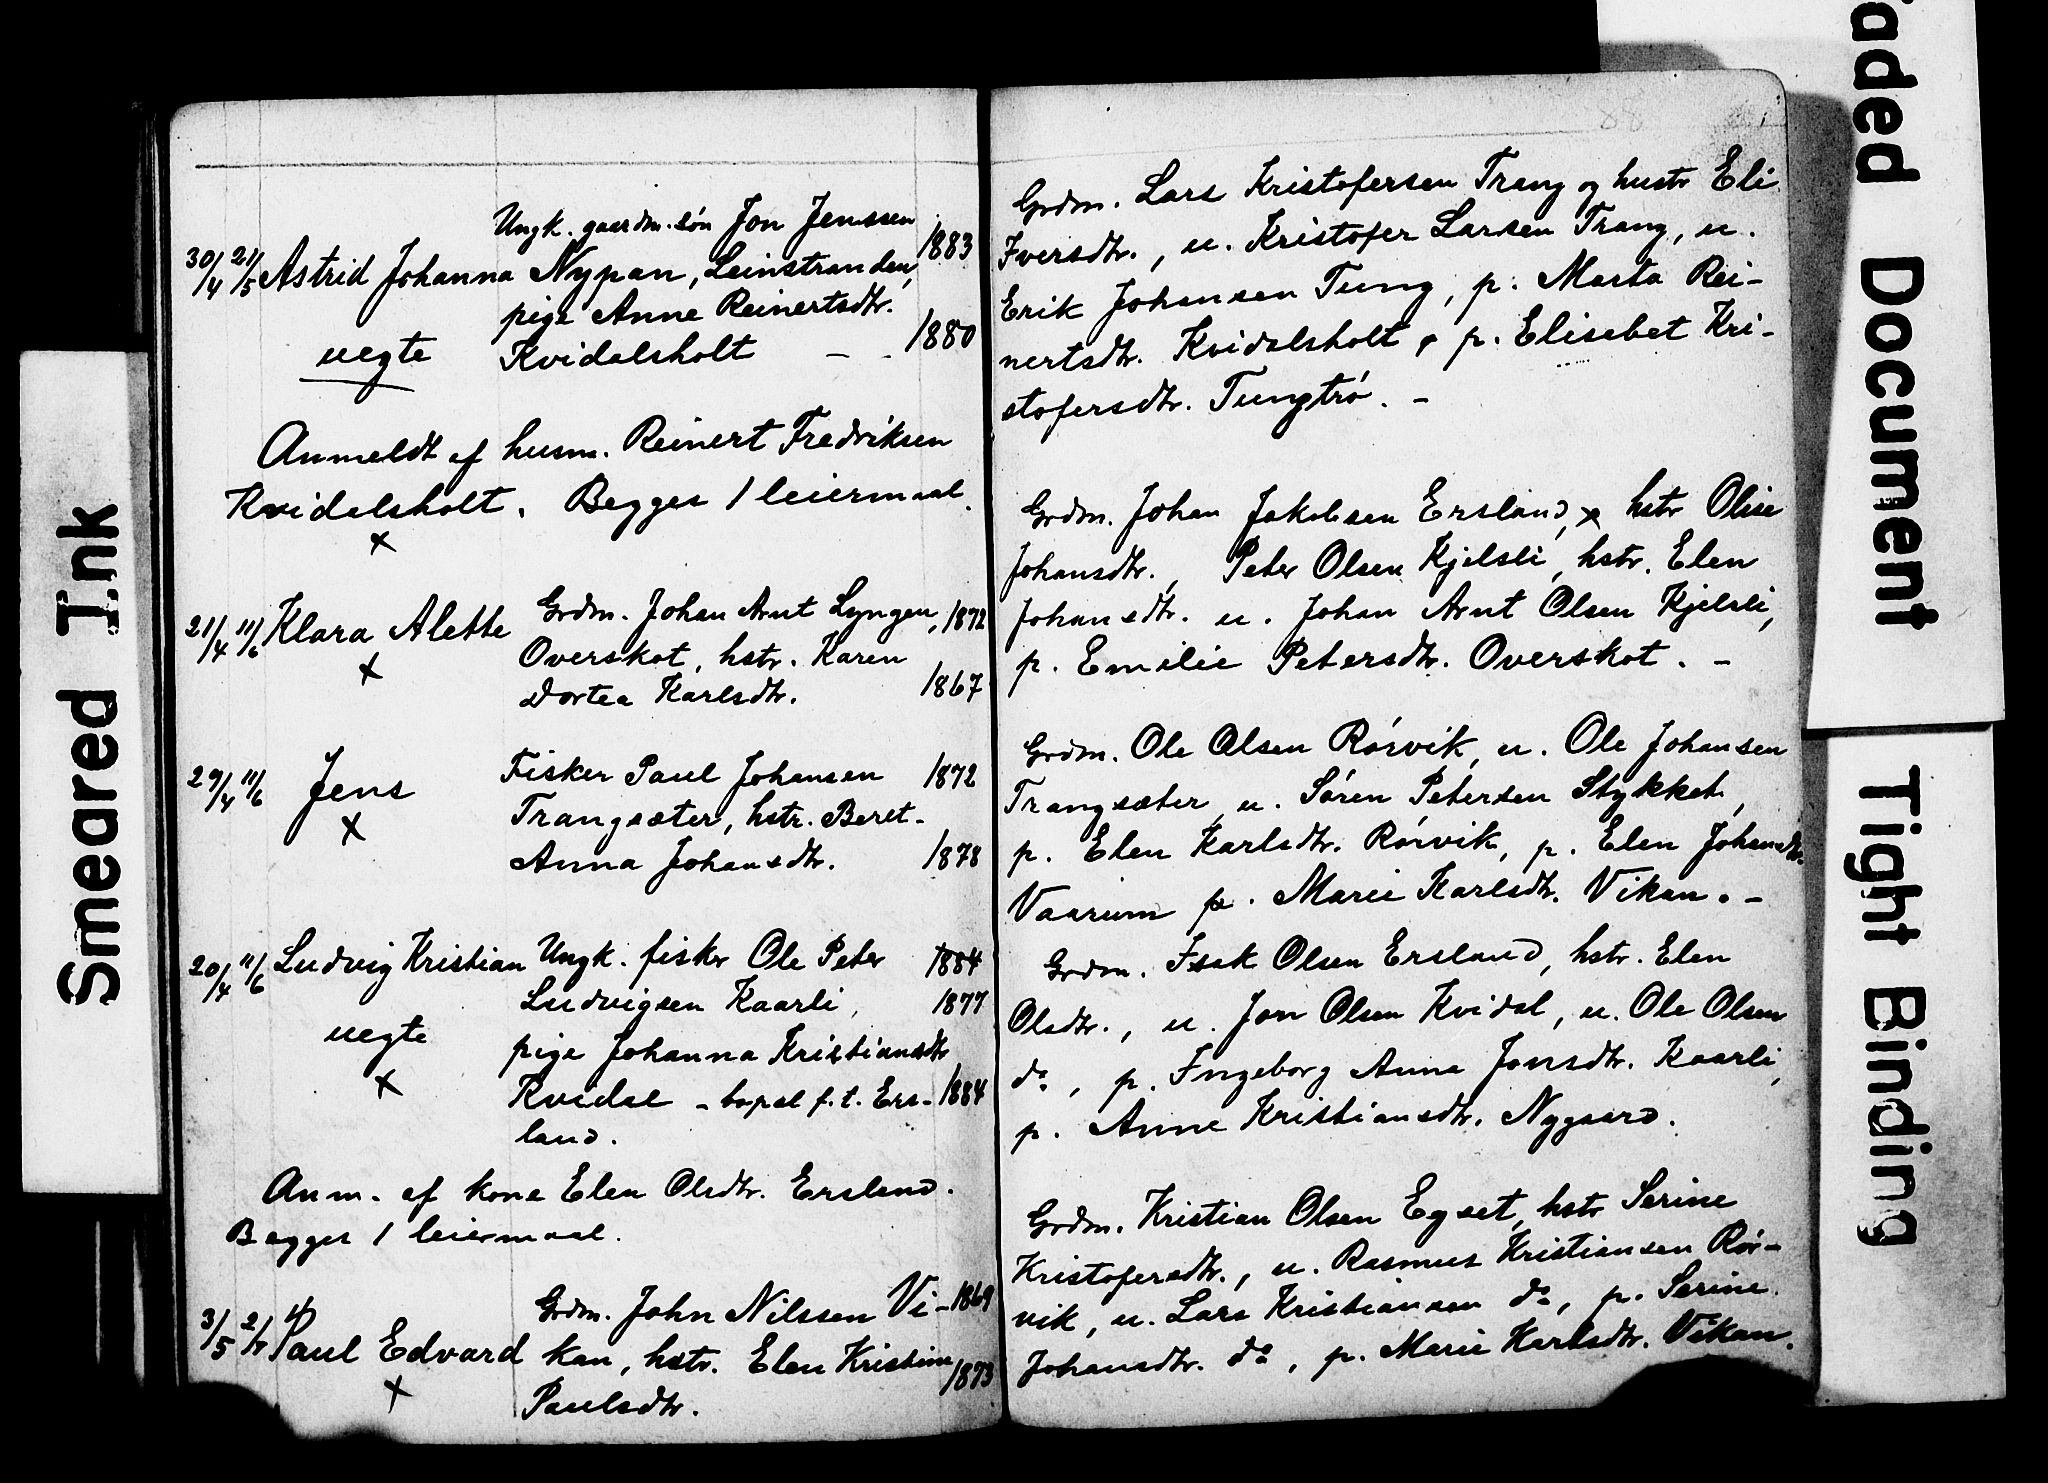 Ungk. gaardm. søn Jon Jenssen
30/4 21/5 Astrid Johanna Nypan, Leinstranden, 1883
pige Anne Reinertsdtr.
uegte Kvidalsholt - - 1880
Anmeldt af husm. Reinert Fredriksen
Kvidalsholt. Begges 1 leiermaal.
x
21/4 11/6 Klara Alette Grdm. Johan Arnt Lyngen, 1872
x Overskot, hstr. Karen
Dortea Karlsdtr. 1867
29/4 11/6 Jens Fisker Paul Johansen 1872
x Trangsæter, hstr. Beret-
Anna Johansdtr. 1878
20/4 11/6 Ludvig Kristian Ungk. fisker Ole Peter 1884
Ludvigsen Kaarli, 1877
uegte pige Johanna Kristiansdtr
x Kvidal - bopæl f.t. Ers- 1884
land.
Anm. af kone Elen Olsdtr. Ersland.
Begges 1 leiermaal.
3/5 Paul Edvard Grdm. John Nilssen Vi- 1869
x kan, hstr. Elen Kristine 1873
Paulsdtr.
88
Grdm. Lars Kristofersen Trang og hustr Eli
Iversdtr., u. Kristofer Larsen Trang, u.
Erik Johansen Tung, p. Marta Rei-
nertsdtr. Kvidalsholt, p. Elisabet Kri-
stofersdtr. Tungtrø. -
Grdm. Johan Jakobsen Ersland, x hstr Olise
Johansdtr., Peter Olsen Kjelsli, hstr. Elen
Johansdtr. u. Johan Arnt Olsen Kjelsli,
p. Emilie Petersdtr. Overskot. -
Grdm. Ole Olsen Rørvik, u. Ole Johansen
Trangsæter, u. Søren Petersen Stykket,
p. Elen Karlsdtr. Rørvik, p. Elen Johansdtr.
Vaarum p. Marie Karlsdtr. Vikan. -
Grdm. Isak Olsen Ersland, hstr. Elen
Olsdtr., u. Jon Olsen Kvidal, u. Ole Olsen
do, p. Ingeborg Anna Jonsdtr. Kaarli,
p. Anne Kristiansdtr. Nygaard.
Grdm. Kristian Olsen Egset, hstr Serine
Kristofersdtr., u. Rasmus Kristiansen Rør-
vik, u. Lars Kristiansen do, p. Serine
Johansdtr. do, p. Marie Karlsdtr. Vikan.
Smeared Ink
aded Document
Tight Binding